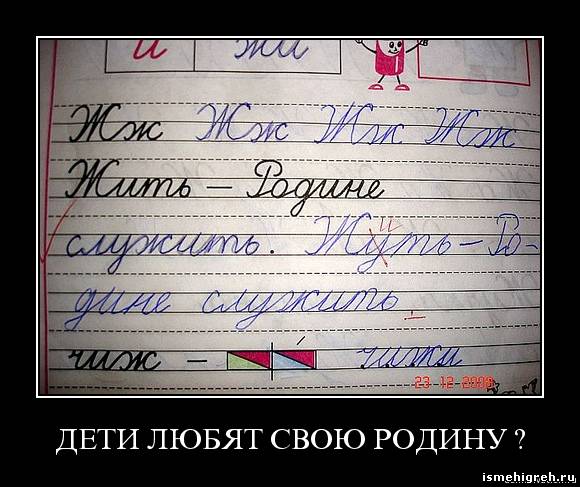 и жи
Жж Жж Жж Жж
Жить – Родине
служить. Жуть – Ро-
и
дине служить.
чиж – чижи
23 12 2008
ДЕТИ ЛЮБЯТ СВОЮ РОДИНУ ?
ismehigreh.ru